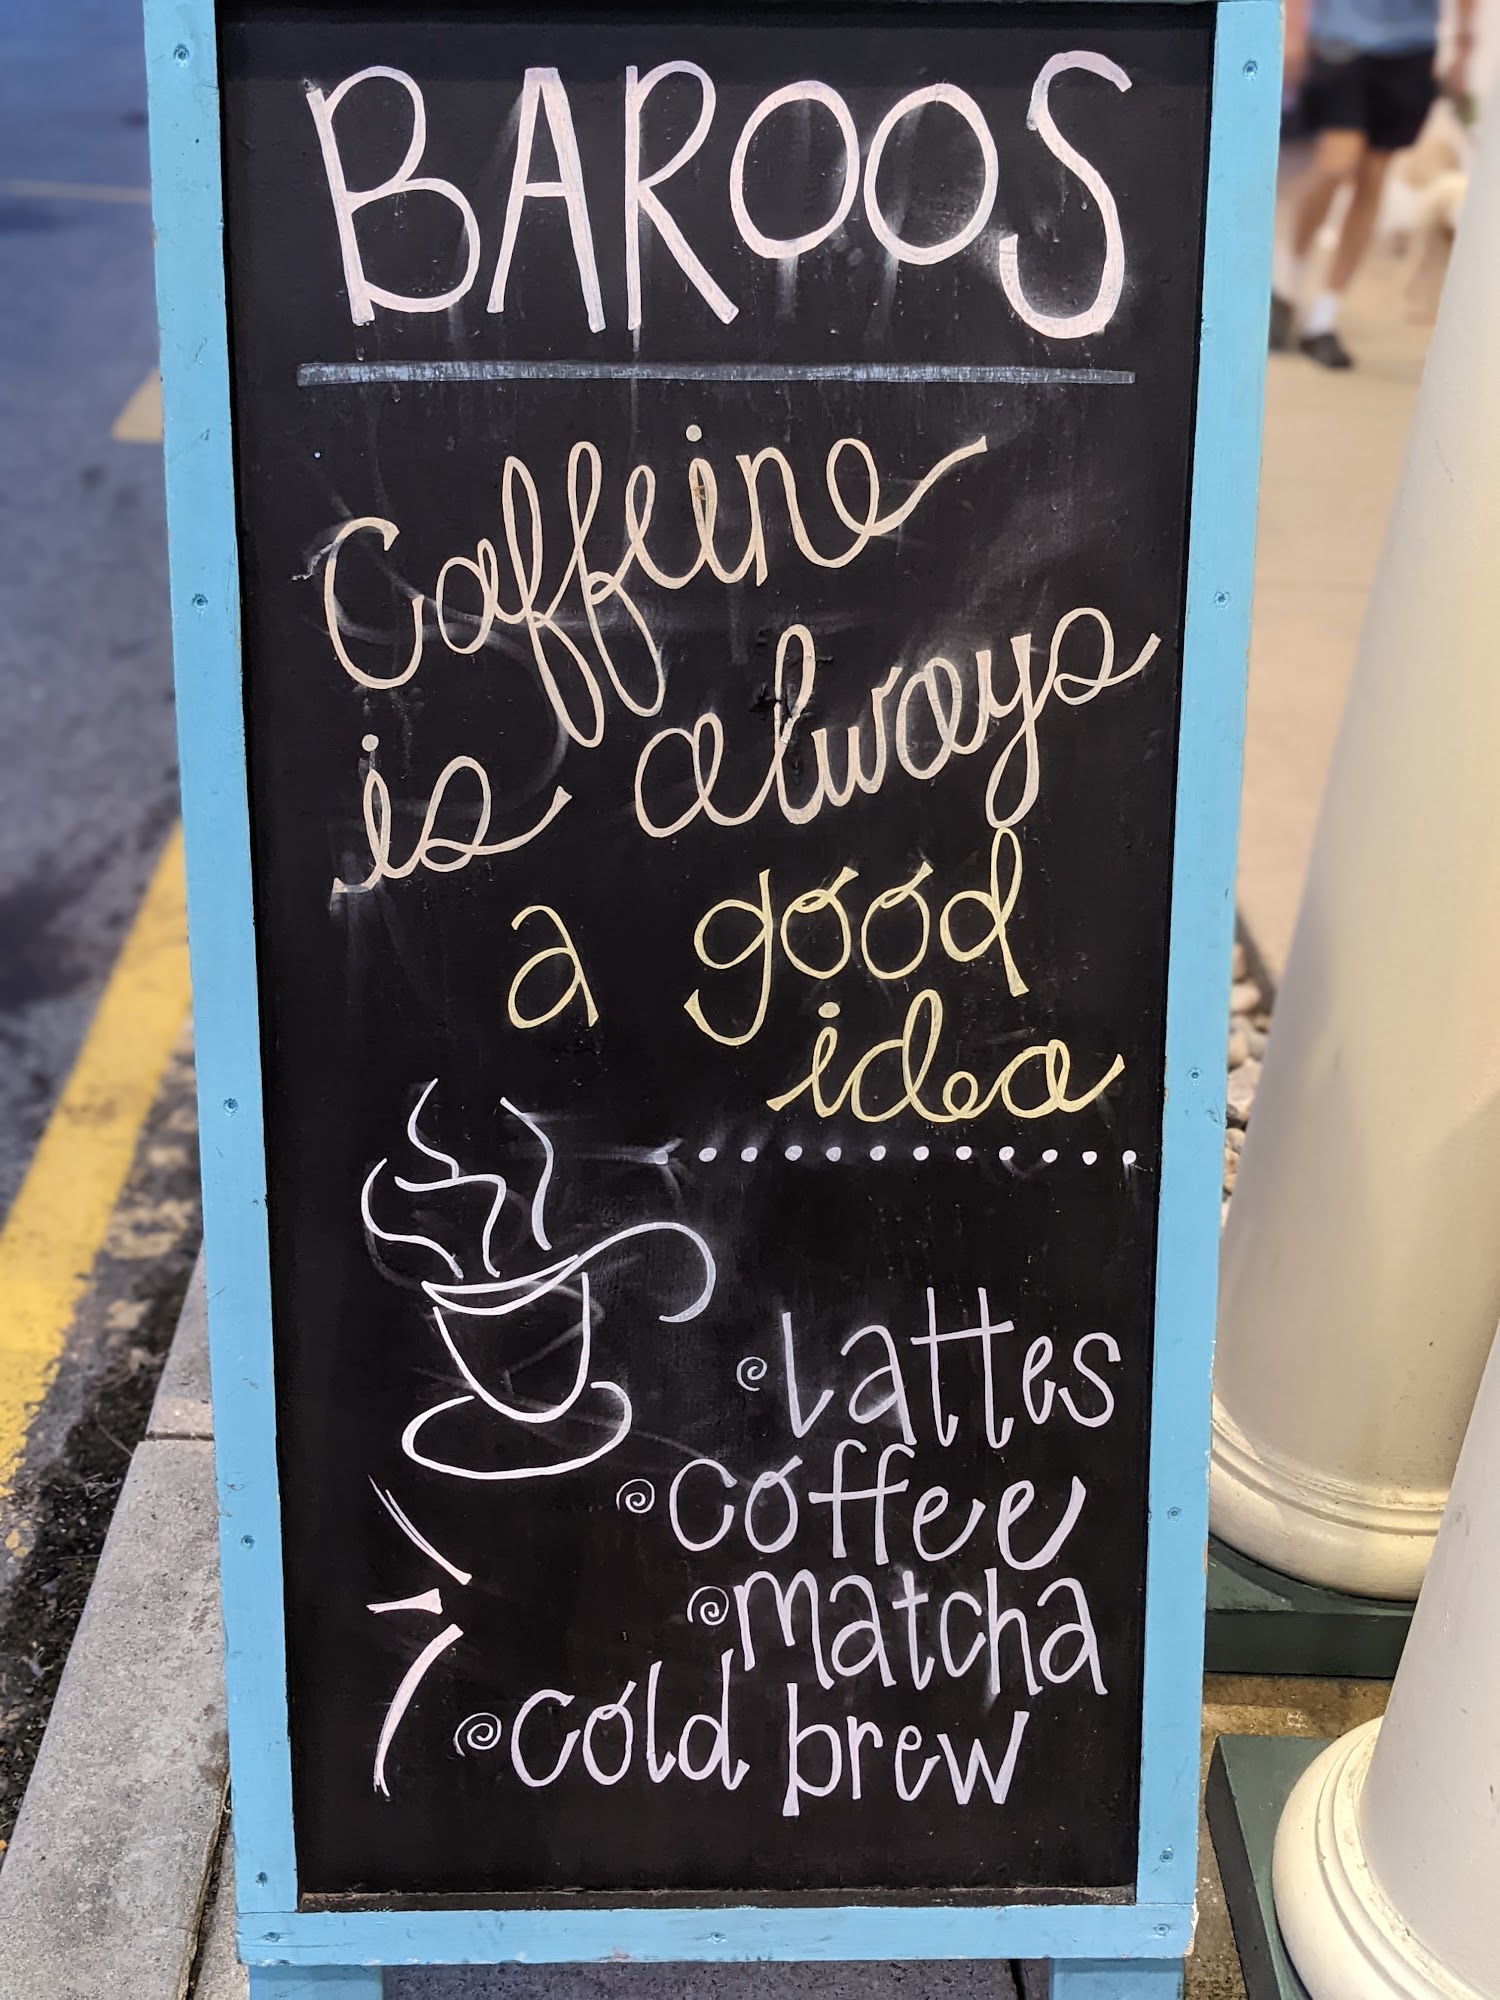 BAROOS
Caffeine
is always
a good
idea
Lattes
coffee
matcha
cold brew